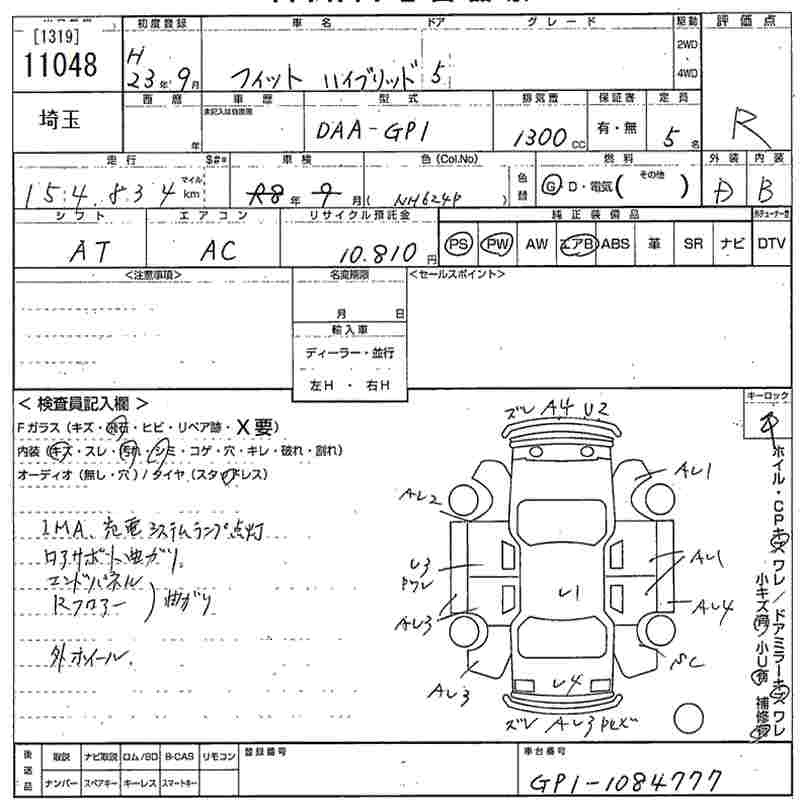 [1319]
11048
埼玉
初度登録 車名 ドア グレード 駆動 評価点
H 23年 9月 フィット ハイブリッド 5 2WD 4WD
R
西暦 車歴 型式 排気量 保証書 定員
未記入は自家用
年 DAA-GP1 1300cc 有・無 5名
走行 車検 色(Col.No) 燃料 外装 内装
154,834 マイル km R8年 9月 ( NH624P ) 色替 Ⓖ D・電気( その他 ) D B
シフト エアコン リサイクル預託金 純正装備品
AT AC 10,810円 PS PW AW エアB ABS 革 SR ナビ DTV
<注意事項> 名変期限 <セールスポイント>
月 日
輸入車
ディーラー・並行
左H ・ 右H
<検査員記入欄> キーロック
Fガラス(キズ・飛石・ヒビ・リペア跡・X要)
内装(キズ・スレ・汚れ・シミ・コゲ・穴・キレ・破れ・割れ)
オーディオ(無し・穴)/タイヤ(スタッドレス)
IMA、充電システムランプ点灯
ロアサポート曲がり。
エンドパネル
Rフロアー )曲がり
外ホイール。
ズレ A4 U2
AU1
AU2
U3
AU1
U1
AU3
AU4
AU3
U4
ズレ AU3
ホイル・CPキズワレ/ドアミラーキズワレ
小キズ有/小U有 補修有
後送品 取説 ナビ取説 ロム/SD B-CAS リモコン 登録番号 車台番号
ナンバー スペアキー キーレス スマートキー GP1-1084777